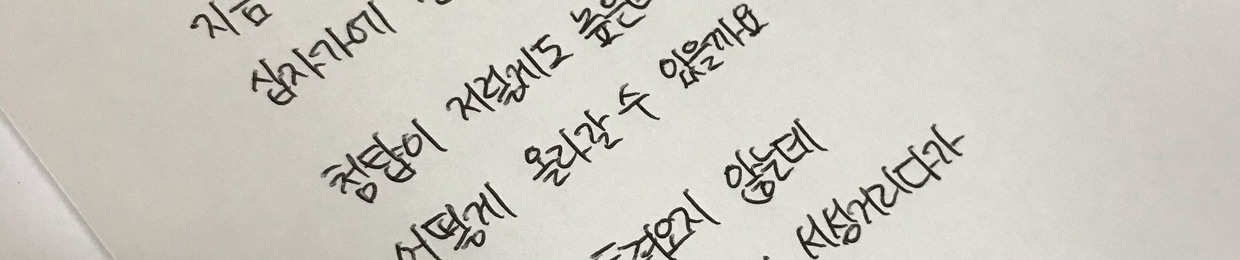 지금
십자가에
첨탑이 저렇게도 높은
어떻게 올라갈 수 있을까요
려오지 않는데
서성거리다가